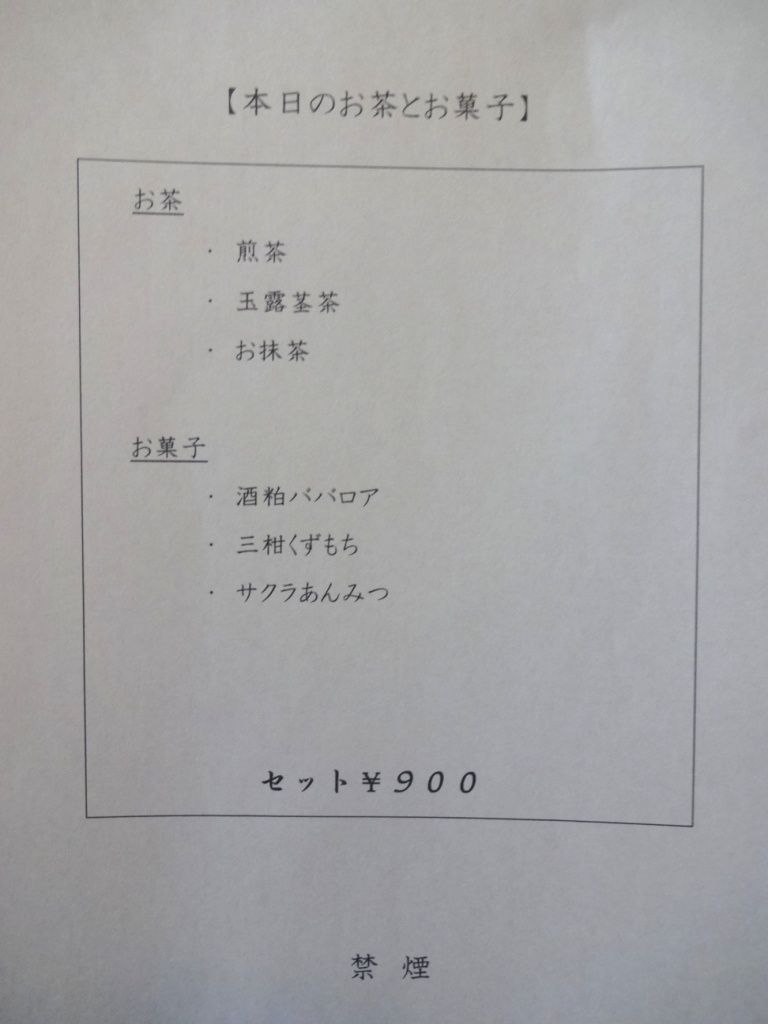 【本日のお茶とお菓子】
お茶
・ 煎茶
・ 玉露茎茶
・ お抹茶
お菓子
・ 酒粕ババロア
・ 三柑くずもち
・ サクラあんみつ
セット¥900
禁 煙